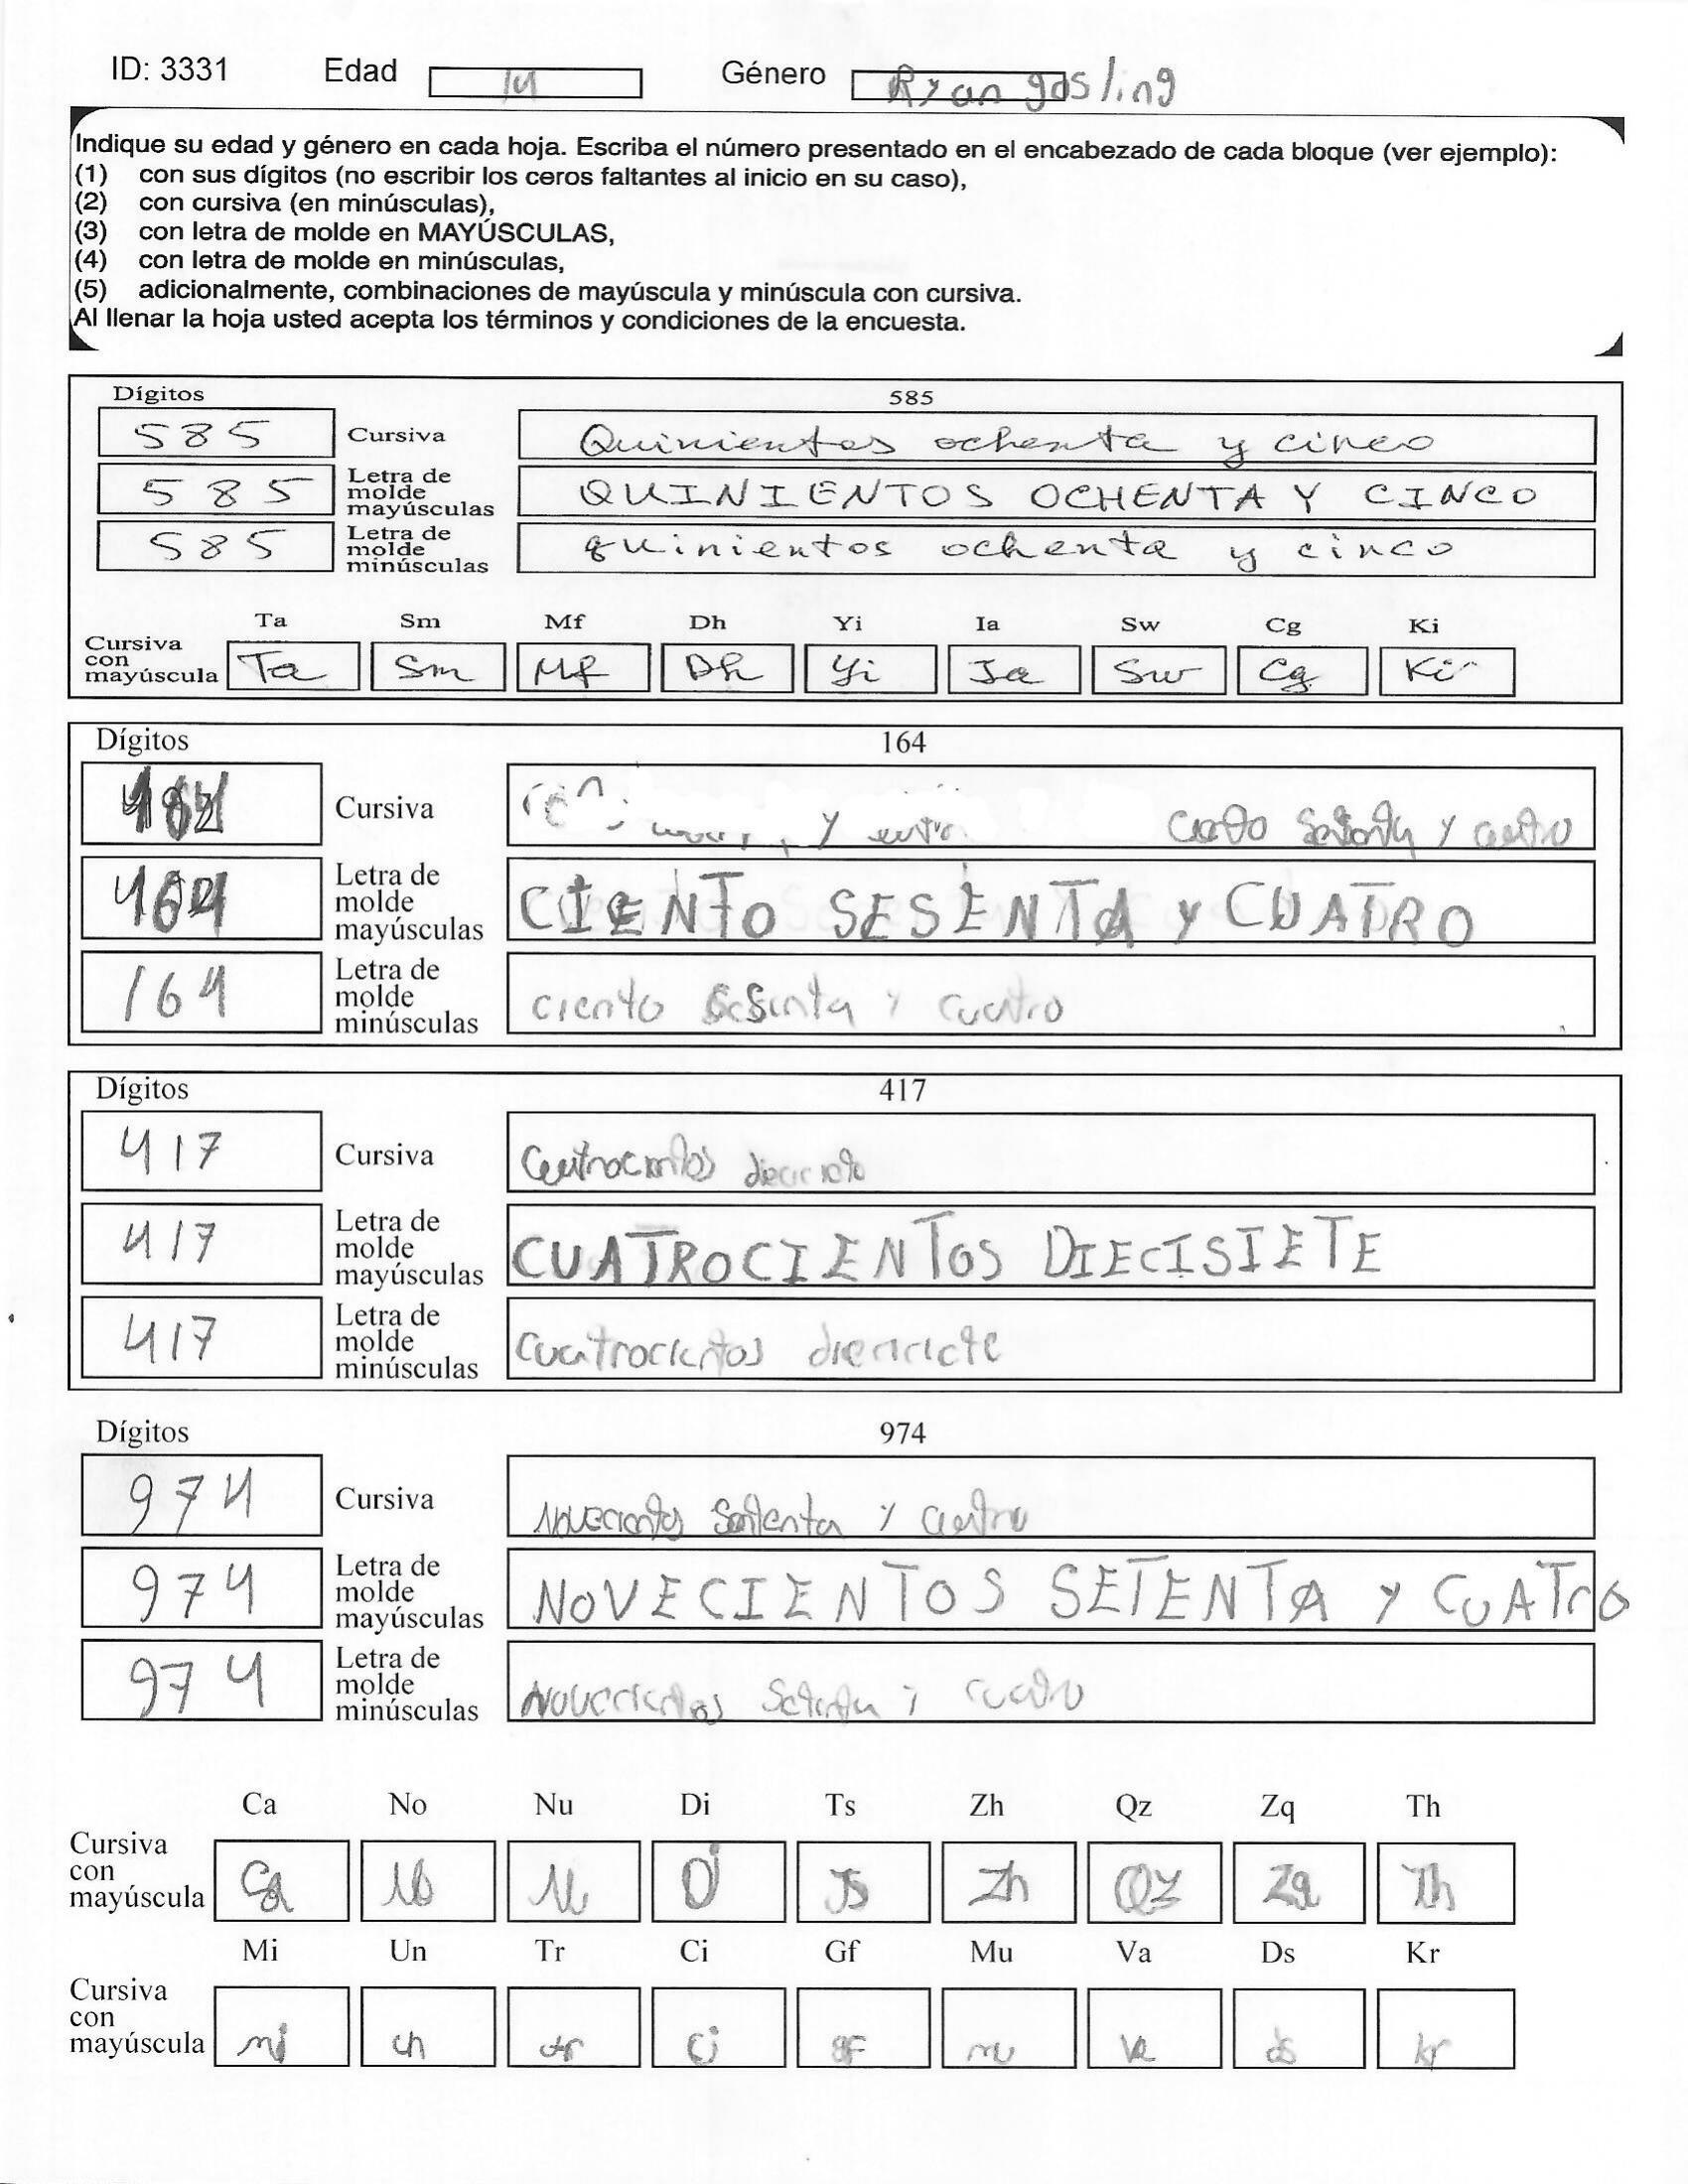 ID: 3331 Edad 14 Género Ryan gosling
Indique su edad y género en cada hoja. Escriba el número presentado en el encabezado de cada bloque (ver ejemplo):
(1) con sus dígitos (no escribir los ceros faltantes al inicio en su caso),
(2) con cursiva (en minúsculas),
(3) con letra de molde en MAYÚSCULAS,
(4) con letra de molde en minúsculas,
(5) adicionalmente, combinaciones de mayúscula y minúscula con cursiva.
Al llenar la hoja usted acepta los términos y condiciones de la encuesta.
Dígitos 585
585 Cursiva Quinientos ochenta y cinco
585 Letra de molde mayúsculas QUINIENTOS OCHENTA Y CINCO
585 Letra de molde minúsculas quinientos ochenta y cinco
Ta Sm Mf Dh Yi Ia Sw Cg Ki
Cursiva con mayúscula Ta Sm Mf Dh Yi Ia Sw Cg Ki
Dígitos 164
Cursiva y ciento sesenta y cuatro
164 Letra de molde mayúsculas CIENTO SESENTA y CUATRO
164 Letra de molde minúsculas ciento sesenta y cuatro
Dígitos 417
417 Cursiva Cuatrocientos
417 Letra de molde mayúsculas CUATROCIENTOS DIECISIETE
417 Letra de molde minúsculas cuatrocientos
Dígitos 974
974 Cursiva Novecientos Setenta y cuatro
974 Letra de molde mayúsculas NOVECIENTOS SETENTA y CUATrO
974 Letra de molde minúsculas Novecientos Setenta y cuatro
Ca No Nu Di Ts Zh Qz Zq Th
Cursiva con mayúscula Ca No Nu Di Ts Zh Qz Zq Th
Mi Un Tr Ci Gf Mu Va Ds Kr
Cursiva con mayúscula mi un tr ci gf mu va ds kr